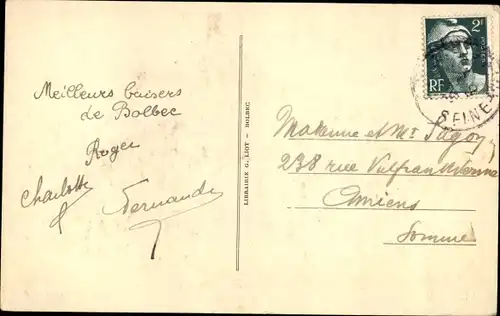 Meilleurs baisers
de Bolbec
Roger
Charlotte
Fernande
LIBRAIRIE G. LIOT - BOLBEC
2F
RF
SEINE
Madame et Mr
238 rue Vulfran Warme
Amiens
Somme